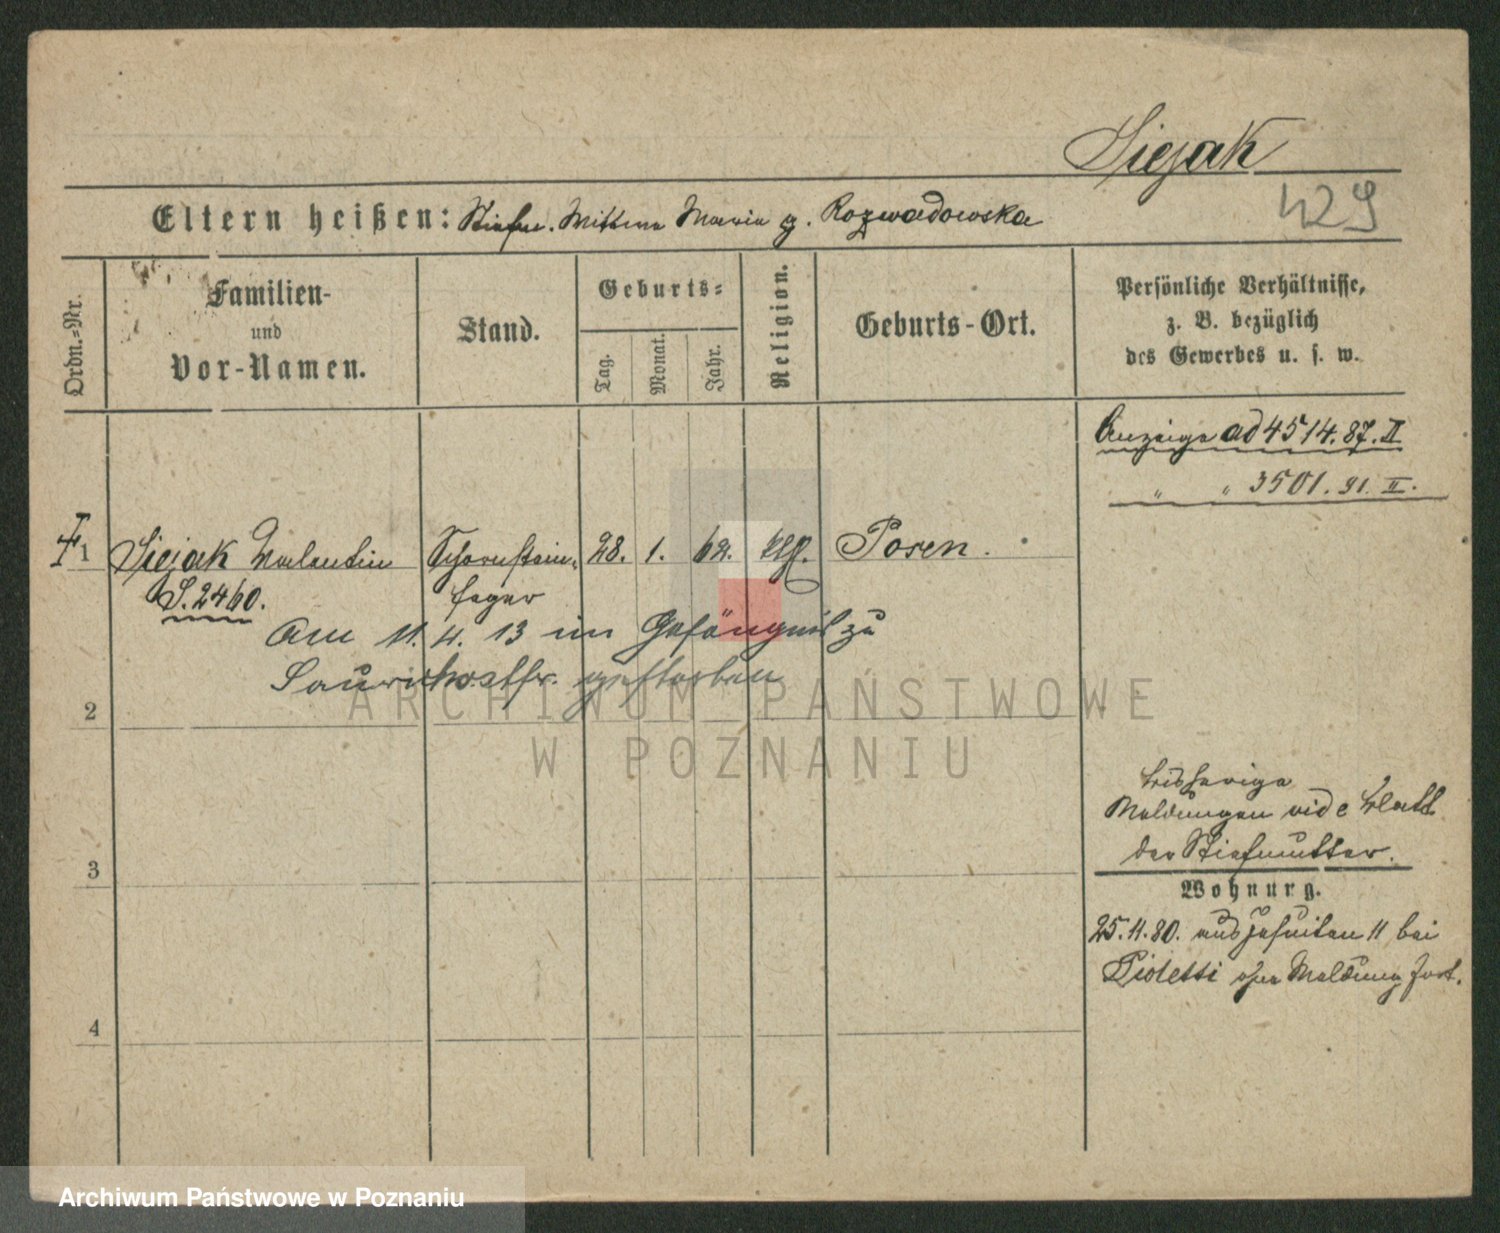 Siejak
429
Eltern heißen: Stiefm. Mutter Maria g. Rozwadowska
Ordn.-Nr.
Familien-
und
Vor-Namen.
Stand.
Geburts-
Tag.
Monat.
Jahr.
Religion.
Geburts-Ort.
Persönliche Verhältnisse,
z. B. bezüglich
des Gewerbes u. s. w.
Anzeige ad 4514. 87. II
" " 3501. 91. II.
1 Siejak Valentin Schornstein- 28. 1. 62. Posen.
S. 2460. feger
Am 11. 4. 13 im Gefängnis zu
gestorben
2
bisherige
Meldungen vide Blatt
der Stiefmutter.
3
Wohnung.
25.11.80. aus Jesuiten 11 bei
Pioletti ohne Meldung fort.
4
ARCHIWUM PAŃSTWOWE
W POZNANIU
Archiwum Państwowe w Poznaniu